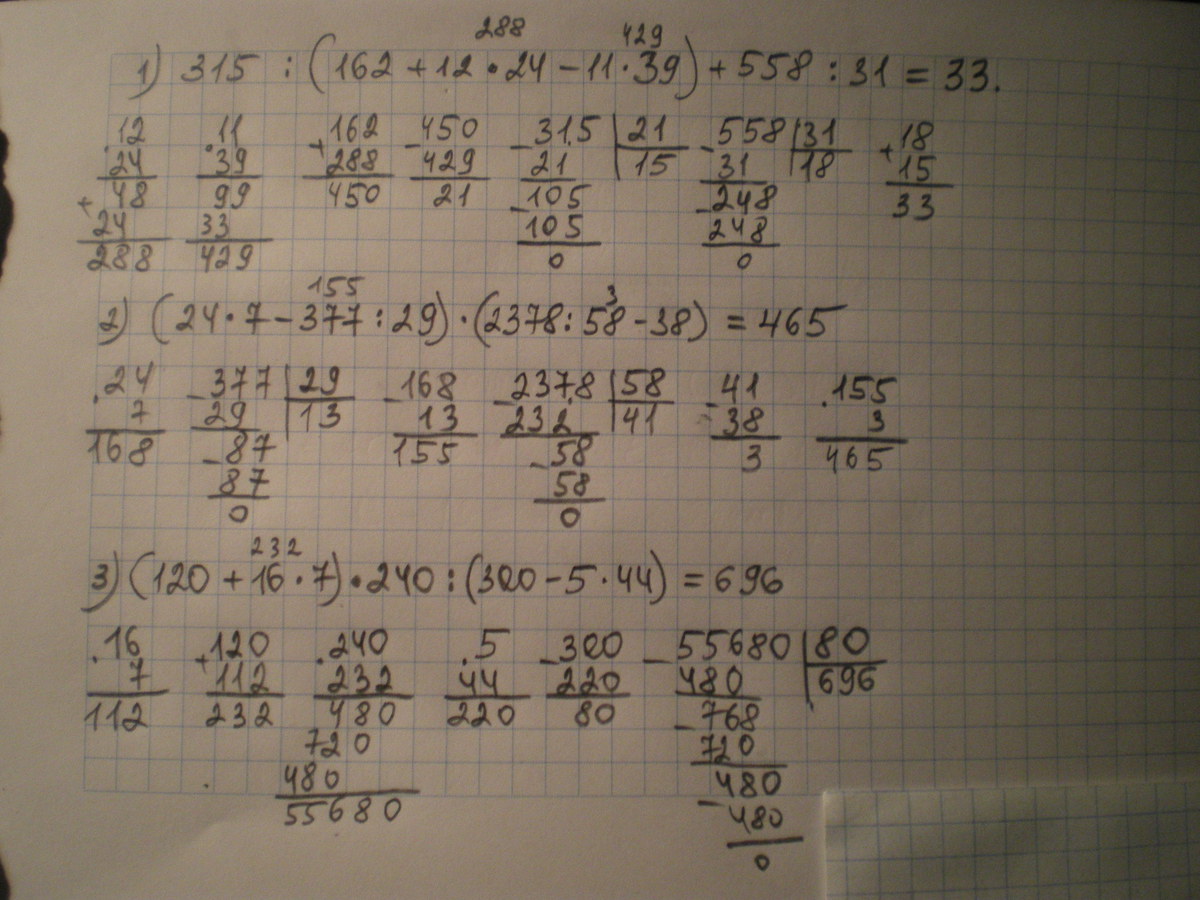 288 429
1) 315 : (162 + 12 · 24 - 11 · 39) + 558 : 31 = 33.
.12 .11 +162 -450 -315 | 21 -558 | 31 +18
24 39 288 429 21 | 15 31 | 18 15
+48 99 450 21 -105 -248 33
24 33 105 248
288 429 0 0
155 3
2) (24 · 7 - 377 : 29) · (2378 : 58 - 38) = 465
.24 -377 | 29 -168 -2378 | 58 -41 .155
7 29 | 13 13 232 | 41 38 3
168 -87 155 -58 3 465
87 58
0 0
232
3) (120 + 16 · 7) · 240 : (300 - 5 · 44) = 696
.16 +120 .240 .5 -300 -55680 | 80
7 112 232 44 220 480 | 696
112 232 480 220 80 -768
720 720
480 -480
55680 480
0